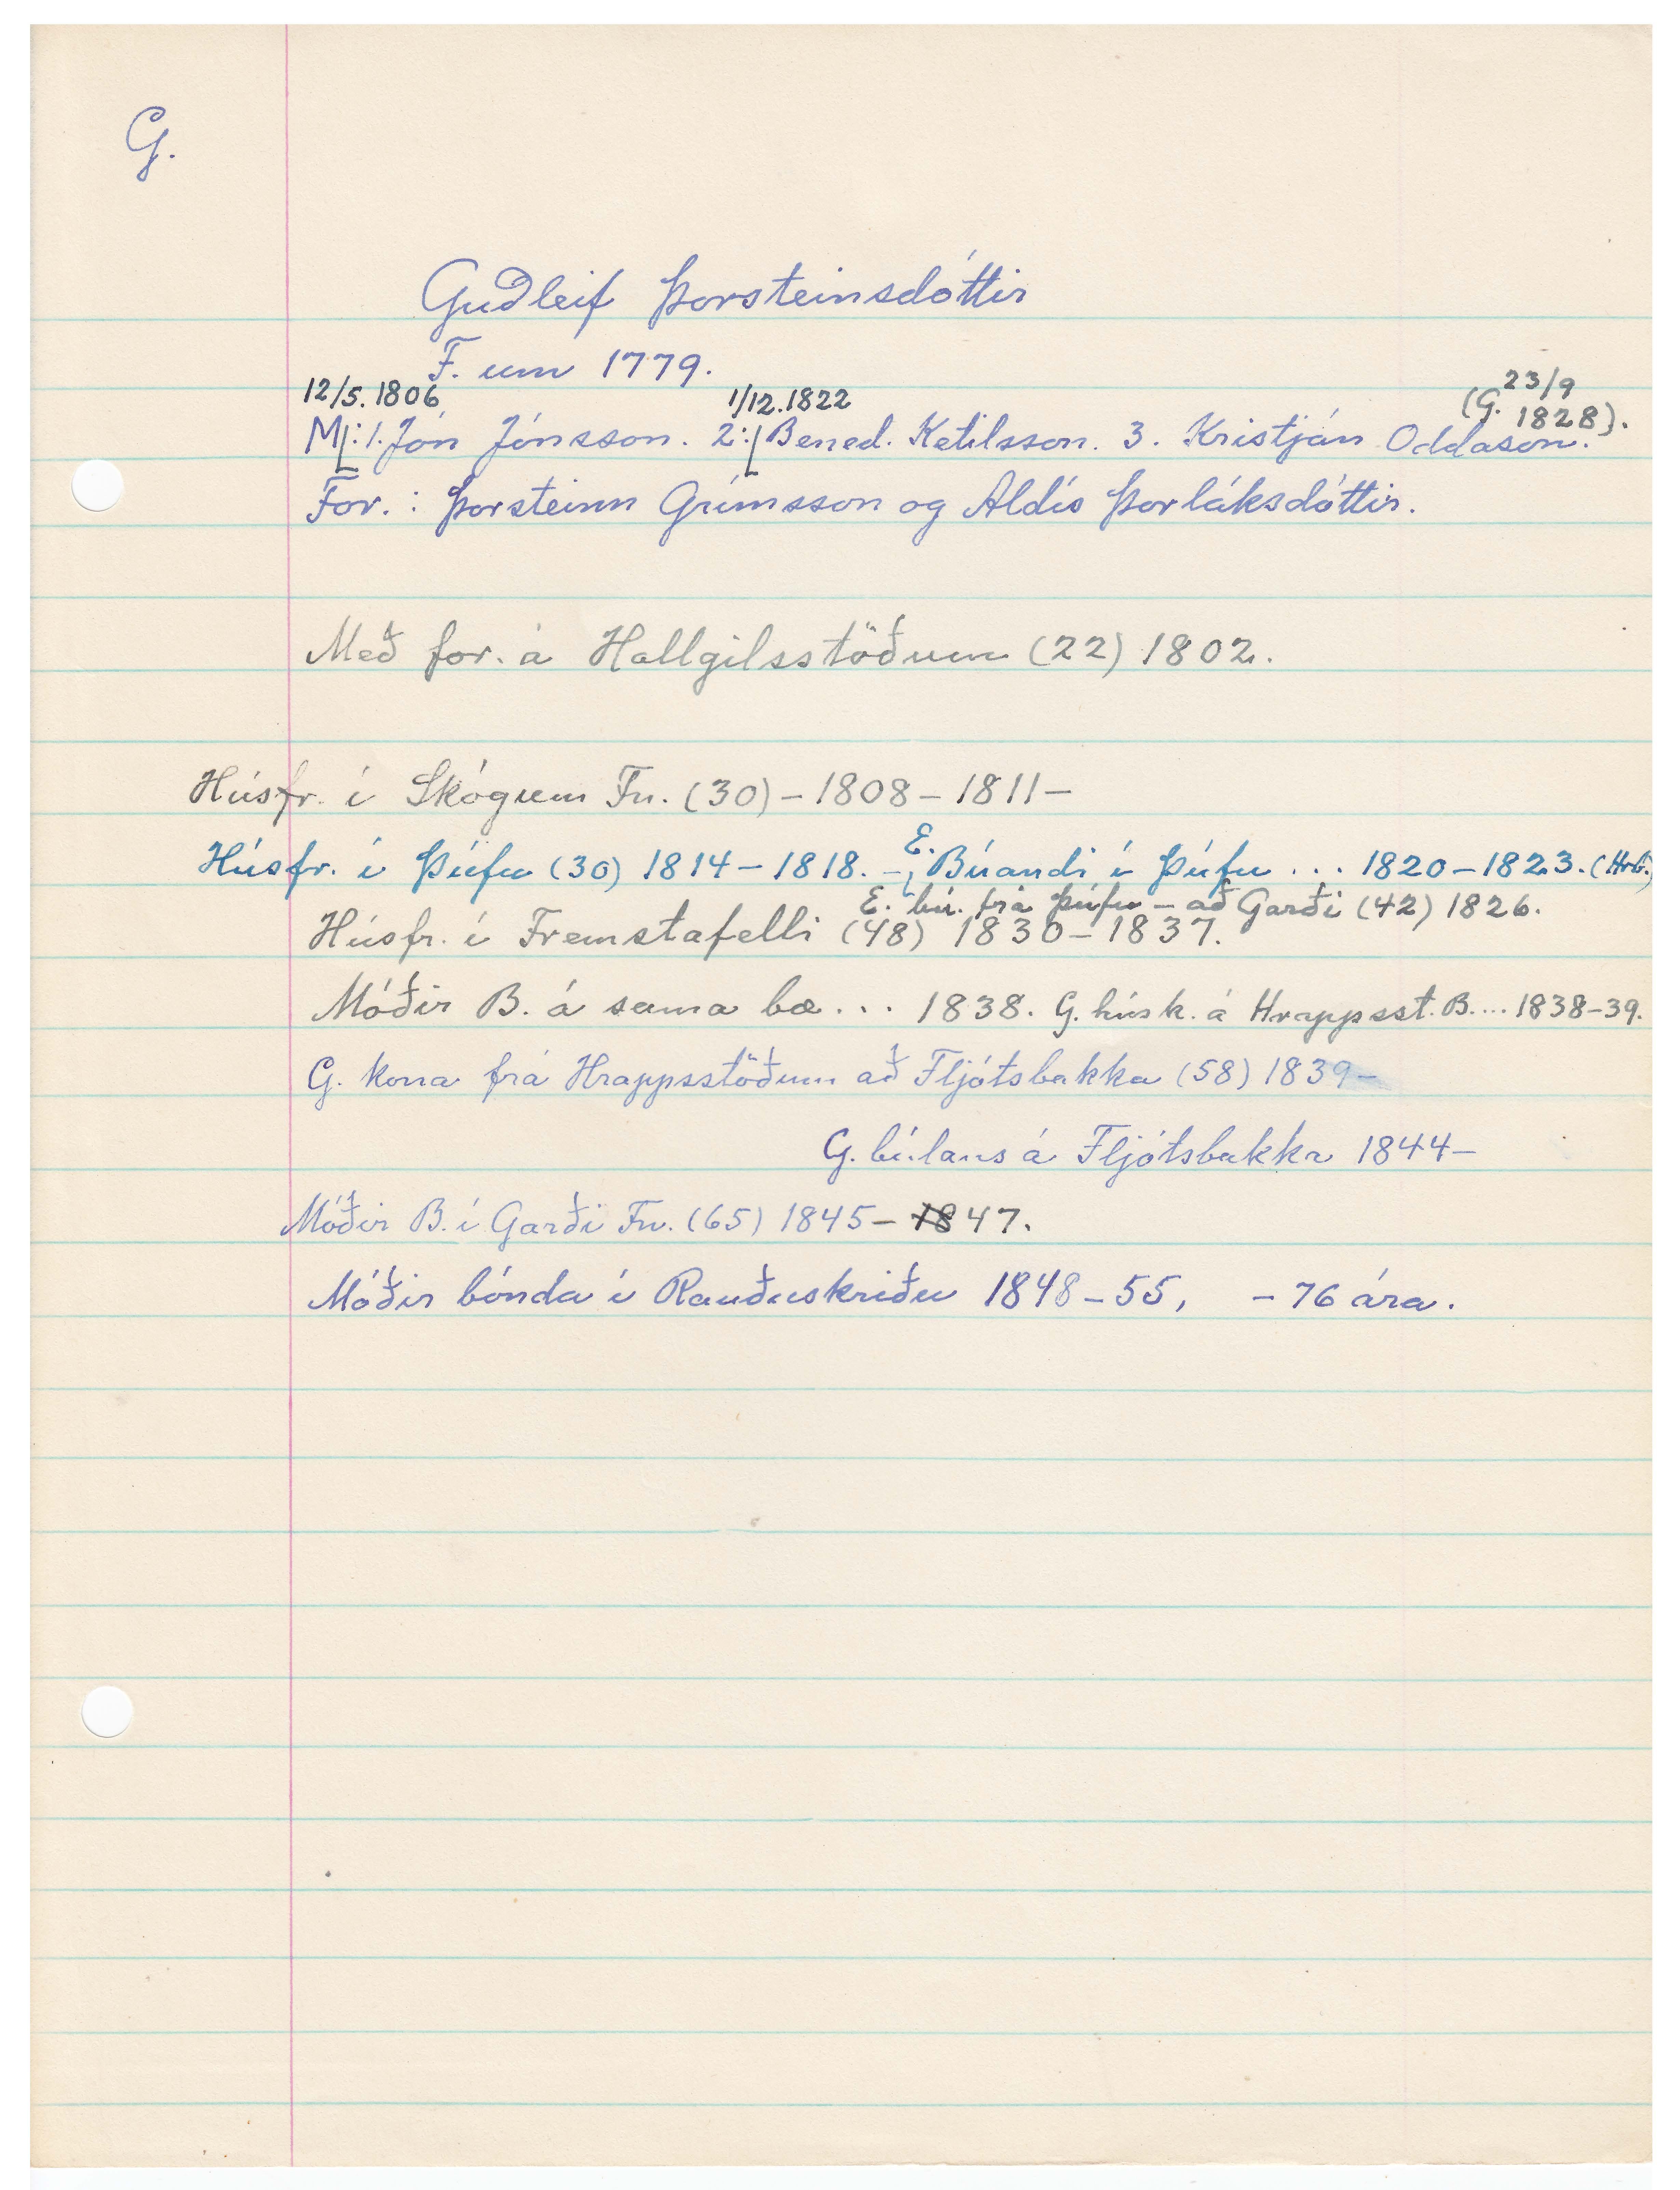 G.
Guðleif Þorsteinsdóttir
F. um 1779.
12/5.1806 1/12.1822 (G. 23/9 1828).
M: 1. Jón Jónsson. 2: Bened. Ketilsson. 3. Kristján Oddason.
For. : Þorsteinn Grímsson og Aldís Þorláksdóttir.
Með for. á Hallgilsstöðum (22) 1802.
Húsfr. í Skógum Fn. (30) – 1808 – 1811 –
Húsfr. í Þúfu (30) 1814 – 1818. – E. Búandi í Þúfu . . . 1820 – 1823. (Hrb.)
E. bú. frá Þúfu – að Garði (42) 1826.
Húsfr. í Fremstafelli (48) 1830 – 1837.
Móðir B. á sama bæ . . . 1838. G. húsk. á Hrappsst. B.... 1838–39.
G. kona frá Hrappsstöðum að Fljótsbakka (58) 1839 –
G. búlaus á Fljótsbakka 1844 –
Móðir B. í Garði Fn. (65) 1845 – 1847.
Móðir bónda í Rauðuskriðu 1848 – 55, – 76 ára.